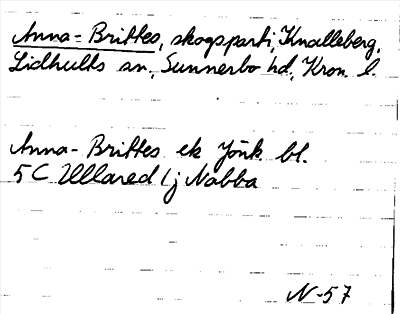 Anna-Brittes, skogsparti, Knalleberg,
Lidhults sn, Sunnerbo hd, Kron. l.
Anna-Brittes ek Jönk. bl.
5C Ullared / j Nabba
N-57